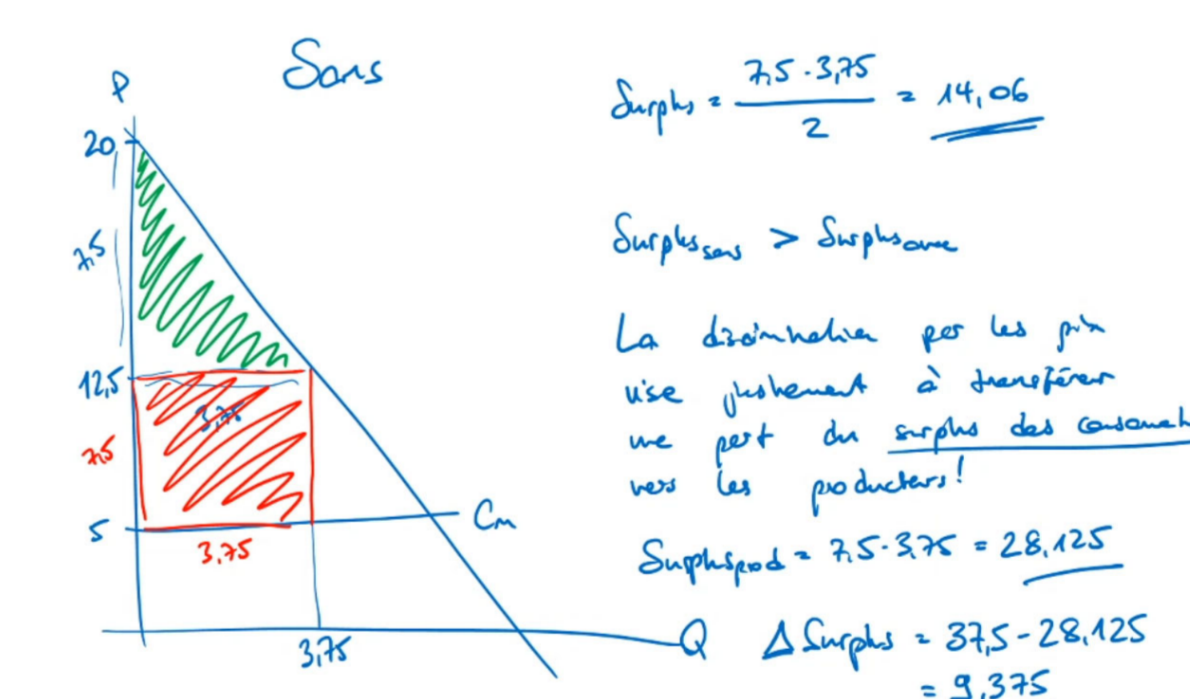 Sans
P
20
7,5
12,5
3,75
7,5
5
3,75
Cm
3,75
Q
Surplus = 7,5 · 3,75 / 2 = 14,06
Surplus sans > Surplus avec
La discrimination par les prix
vise justement à transférer
une part du surplus des consomat
vers les producteurs!
Surplus prod = 7,5 · 3,75 = 28,125
Δ Surplus = 37,5 - 28,125
= 9,375